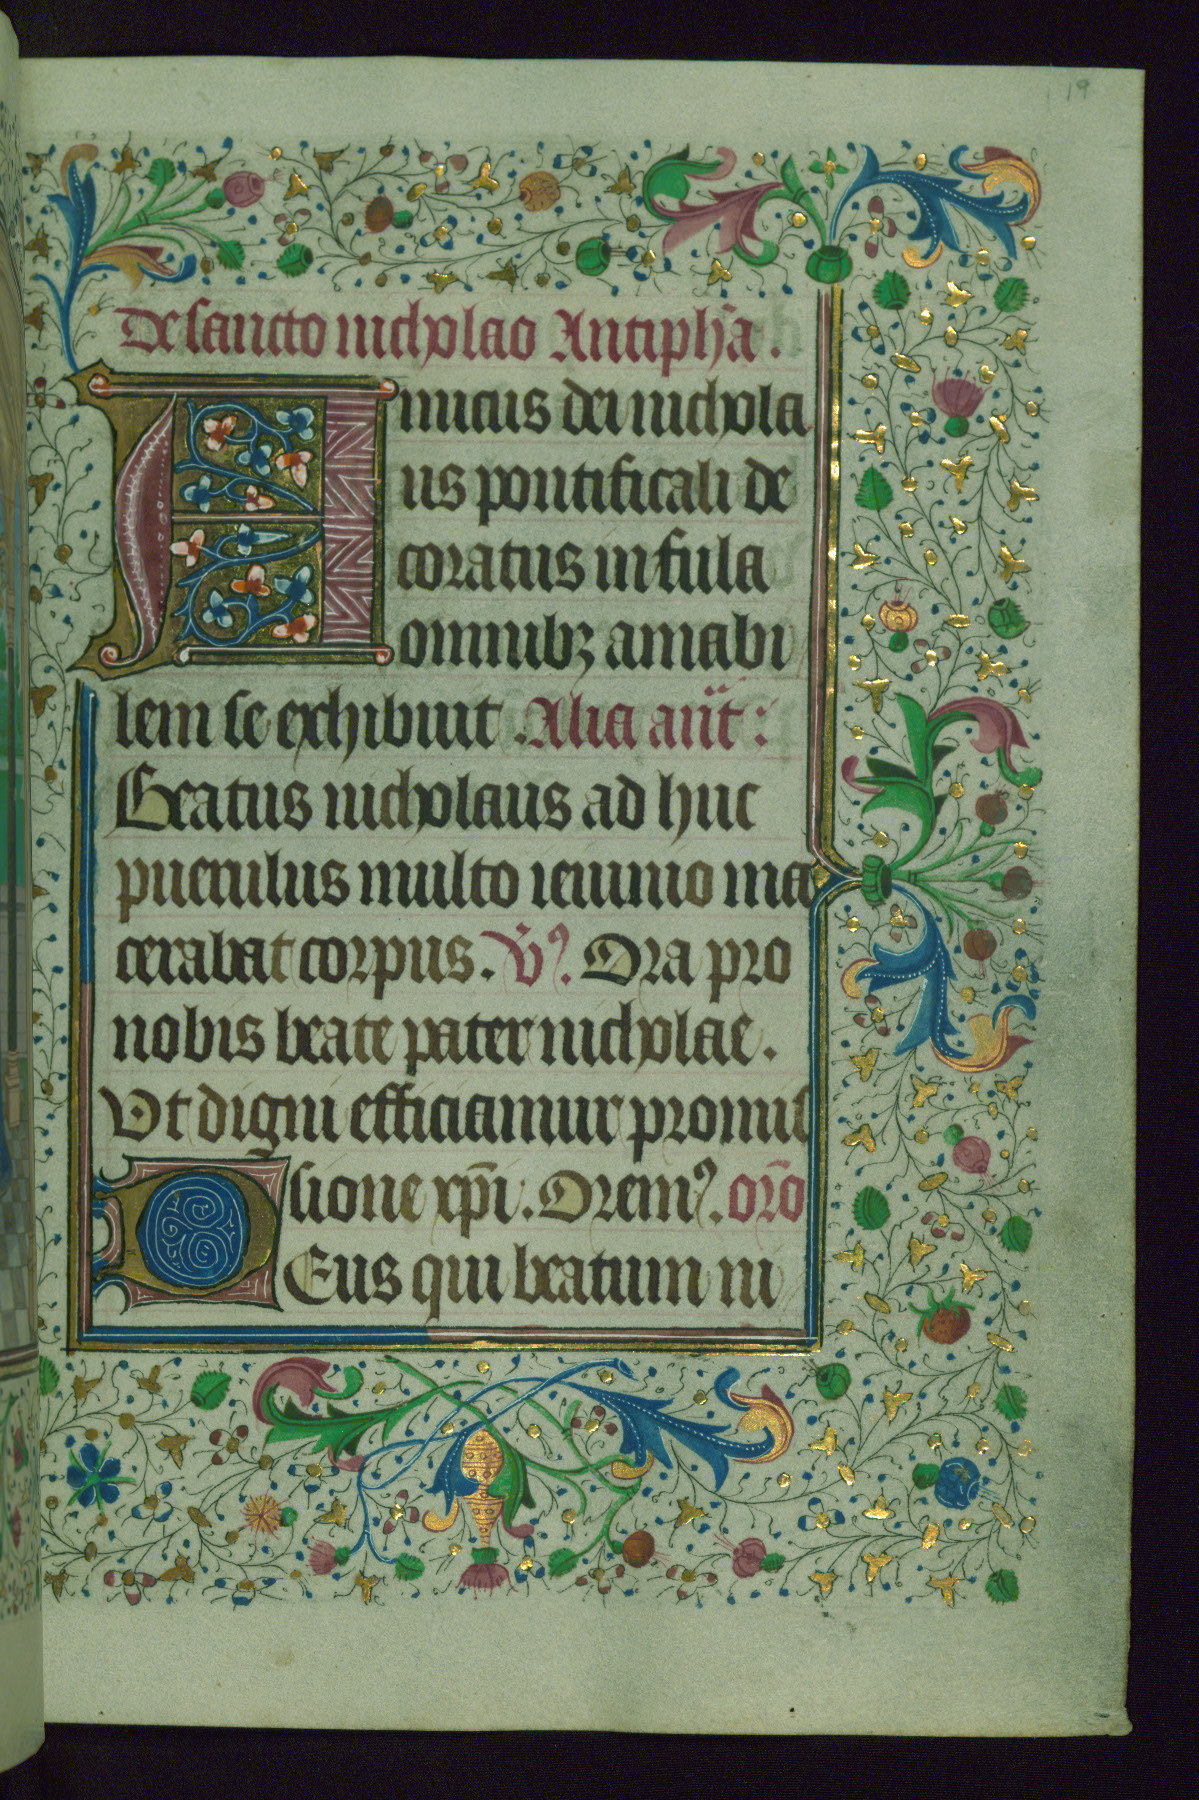 19
De sancto nicholao Antiph'a.
Amicus dei nichola
us pontificali de
coratus infula
omnibꝫ amabi
lem se exhibuit. Alia an̄t:
Beatus nicholaus ad huc
puerulus multo ieiunio ma
cerabat corpus. V̄ꝰ. Ora pro
nobis beate pater nicholae.
Ut digni efficiamur promis
sione xp̄i. Oremꝰ. oro̅
DEus qui beatum ni